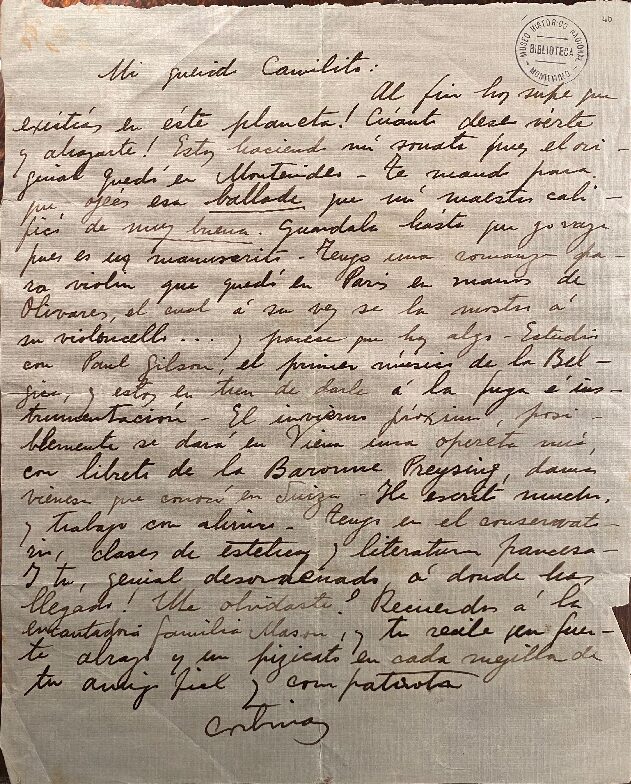 46
MUSEO HISTORICO NACIONAL
BIBLIOTECA
MONTEVIDEO
Mi querido Camilito:
Al fin hoy supe que
existías en éste planeta! Cuánto deseo verte
y abrazarte! Estoy haciendo mi sonata pues el ori-
ginal quedó en Montevideo - te mando para
que ojees esa ballade que mi maestro cali-
ficó de muy buena. Guardala hásta que yo vaya
pues es un manuscrito - Tengo una romanza pa-
ra violin que quedó en París en manos de
Olivares, el cual á su vez se la mostró á
su violoncello... y parece que hay algo - Estudio
con Paul Gilson, el primer músico de la Bél-
gica, y estoy en tren de darle á la fuga é ins-
trumentación - El invierno próximo, posi-
blemente se dará en Viena una opereta mía,
con libreto de la Baronne Preysing, dama
vienesa que conocí en Suiza - He escrito mucho,
y trabajo con ahinco - Tengo en el conservato-
rio, clases de estética y literatura francesa -
Y tu, genial desordenado, á donde has
llegado! Me olvidaste? Recuerdos á la
encantadora familia Mason, y tu recibe un fuer-
te abrazo y un pizicato en cada mejilla de
tu amigo fiel y compatriota
Cortinas